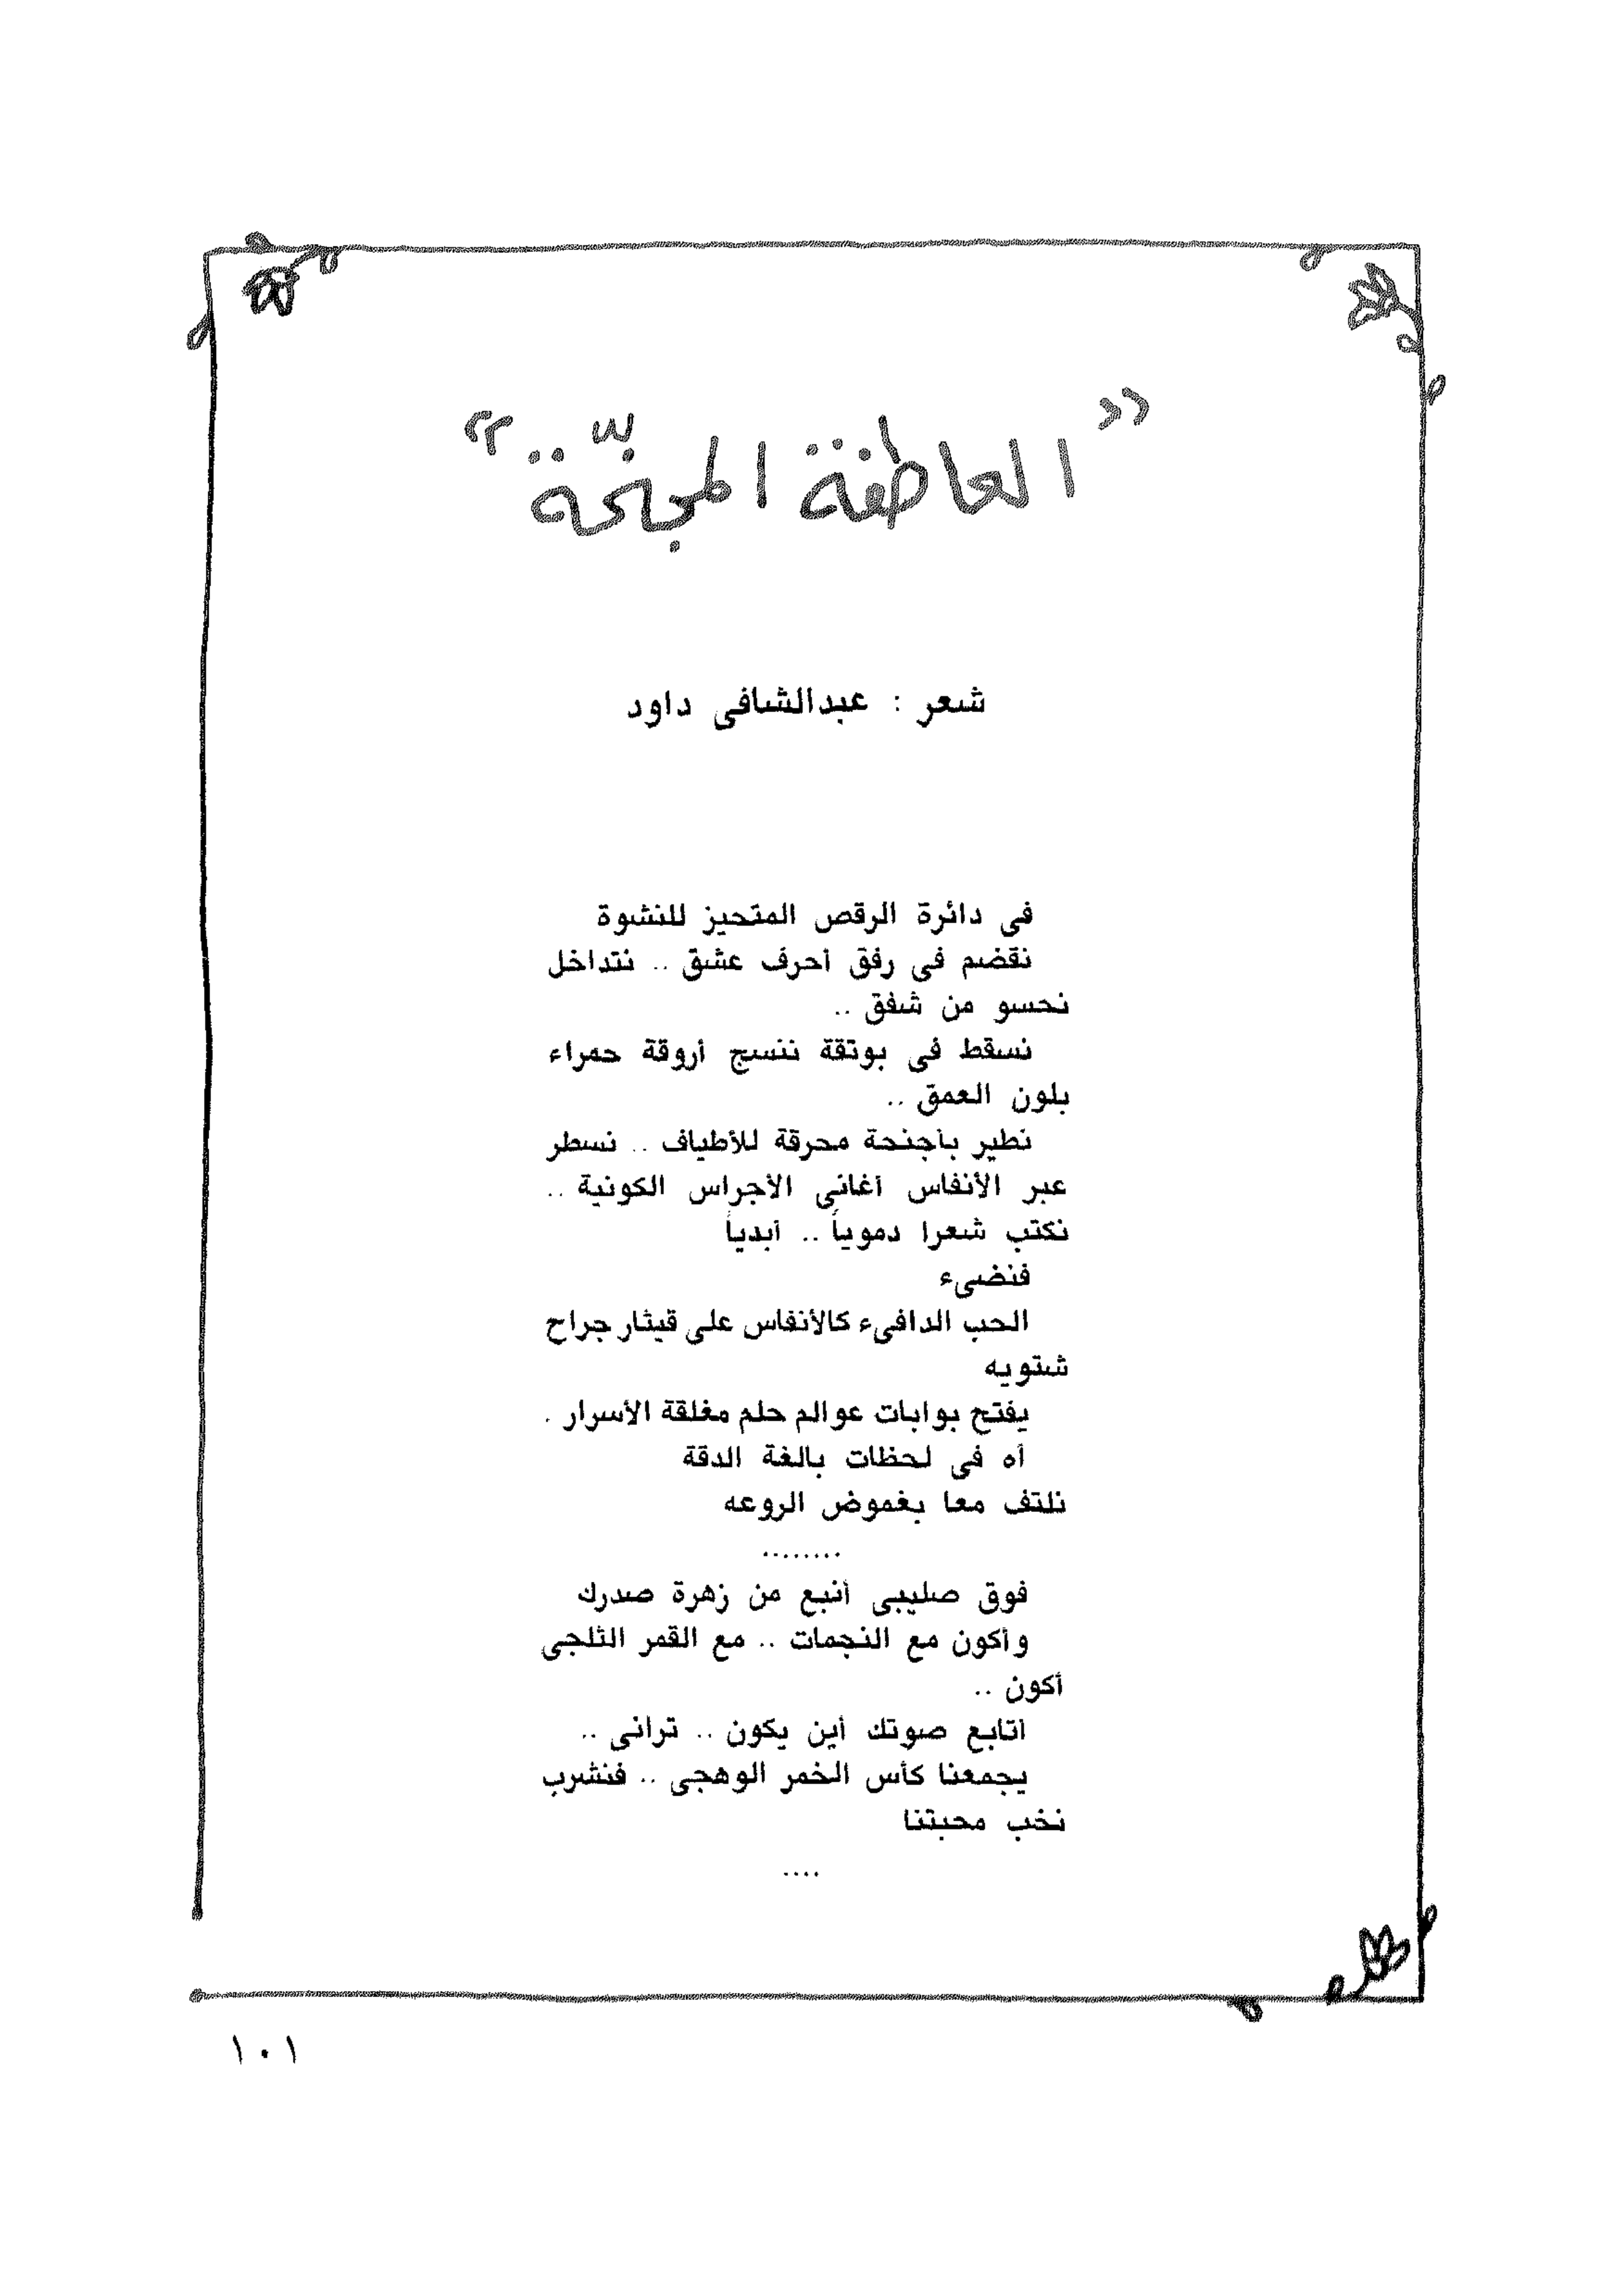 "العاطفة المجنّحة"
شعر : عبدالشافى داود
فى دائرة الرقص المتحيز للنشوة
نقضم فى رفق أحرف عشق .. نتداخل
نحسو من شفق ..
نسقط فى بوتقة ننسج أروقة حمراء
بلون العمق ..
نطير بأجنحة محرقة للأطياف .. نسطر
عبر الأنفاس أغانى الأجراس الكونية ..
نكتب شعرا دموياً .. أبدياً
فنضىء
الحب الدافىء كالأنفاس على قيثار جراح
شتويه
يفتح بوابات عوالم حلم مغلقة الأسرار .
أه فى لحظات بالغة الدقة
نلتف معا بغموض الروعه
........
فوق صليبى أنبع من زهرة صدرك
وأكون مع النجمات .. مع القمر الثلجى
أكون ..
أتابع صوتك أين يكون .. ترانى ..
يجمعنا كأس الخمر الوهجى .. فنشرب
نخب محبتنا
....
١٠١